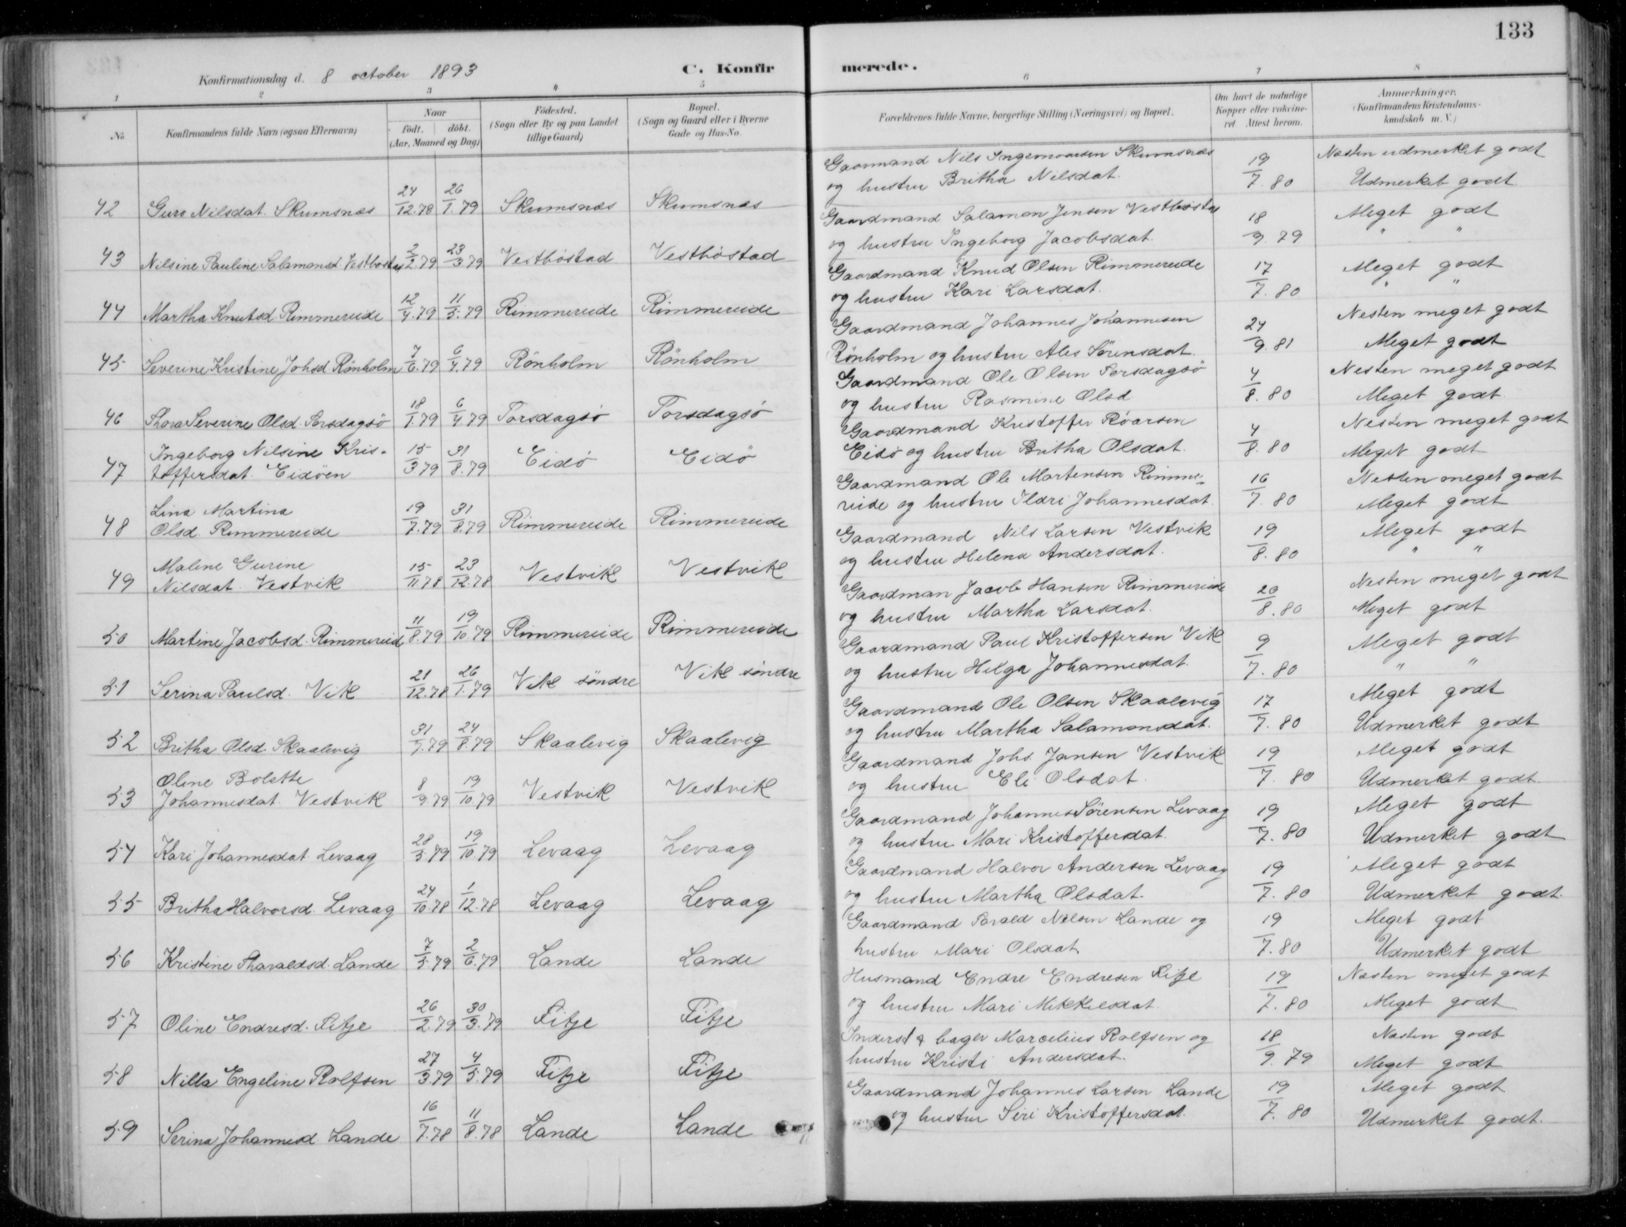 133
Konfirmationsdag d. 8 october 1893
C. Konfirmerede.
1 2 3 4 5 6 7 8
No
Konfirmandens fulde Navn (ogsaa Efternavn)
Naar
født. døbt.
(Aar, Maaned og Dag)
Fødested.
(Sogn eller By og paa Landet
tillige Gaard)
Bopæl.
(Sogn og Gaard eller i Byerne
Gade og Hus-No.
Forældrenes fulde Navne, borgerlige Stilling (Næringsvei) og Bopæl.
Om havt de naturlige
Kopper eller vaccine-
ret. Attest herom.
Anmærkninger.
(Konfirmandens Kristendoms-
kundskab m. V.)
42 Guro Nilsdat. Skumsnæs 24/12.78 26/1.79 Skumsnæs Skumsnæs
Gaarmand Nils Ingemoarsen Skumsnæs 19/7.80 Næsten udmerket godt
og hustru Britha Nilsdat. Udmerket godt
43 Nilsine Pauline Salamonsd. Vestbøstad 2/2.79 23/3.79 Vestbøstad Vestbøstad
Gaardmand Salamon Jensen Vestbøstad 18/9.79 Meget godt
og hustru Ingeborg Jacobsdat. " "
44 Martha Knutsd Rimmereide 12/4.79 11/5.79 Rimmereide Rimmereide
Gaardmand Knud Olsen Rimmereide 17/7.80 Meget godt
og hustru Kari Larsdat. " "
45 Severine Kristine Johsd Rönholm 7/6.79 6/7.79 Rönholm Rönholm
Gaardmand Johannes Johannesen 24/9 81 Nesten meget godt
Rönholm og hustru Ales Sørensdat. Meget godt
46 Thora Severine Olsd. Torsdagsö 18/1.79 6/4.79 Torsdagsö Torsdagsö
Gaardmand Ole Olsen Torsdagsö 4/8.80 Nesten meget godt
og hustru Rasmine Olsd Meget godt
47 Ingeborg Nilsine Kris-
toffersdat. Eidöen 15/3 79 31/8.79 Eidö Eidö
Gaardmand Kristoffer Roarsen 4/8.80 Nesten meget godt
Eidö og hustru Britha Olsdat. Meget godt
48 Lina Martina
Olsd. Rimmereide 19/7.79 31/8.79 Rimmereide Rimmereide
Gaardmand Ole Martensen Rimme-
reide og hustru Kari Johannesdat 16/7.80 Nesten meget godt
Meget godt
49 Maline Gurine
Nilsdat. Vestvik 15/11.78 23/12.78 Vestvik Vestvik
Gaardmand Nils Larsen Vestvik 19/8.80 Meget godt
og hustru Helena Andersdat. " "
50 Martine Jacobsd. Rimmereid 11/8.79 19/10.79 Rimmereide Rimmereide
Gaardman Jacob Hansen Rimmereide 20/8.80 Nesten meget godt
og hustru Martha Larsdat. Meget godt
51 Serina Paulsd. Vik 21/12.78 26/1.79 Vik söndre Vik söndre
Gaardmand Paul Kristoffersen Vik 9/7.80 Meget godt
og hustru Helga Johannesdat. " "
52 Britha Olsd. Skaalevig 31/7.79 24/8.79 Skaalevig Skaalevig
Gaardmand Ole Olsen Skaalevig 17/7.80 Meget godt
og hustru Martha Salamonsdat. Udmerket godt
53 Oline Bolette
Johannesdat. Vestvik 8/9.79 19/10.79 Vestvik Vestvik
Gaardmand Johs Jansen Vestvik 19/7.80 Meget godt
og hustru Eli Olsdat Udmerket godt
54 Kari Johannesdat Levaag 28/5.79 19/10.79 Levaag Levaag
Gaardmand Johannes Sørensen Levaag 19/7.80 Meget godt
og hustru Mari Kristoffersdat. Udmerket godt
55 Britha Halvorsd. Levaag 24/10.78 1/12.78 Levaag Levaag
Gaardmand Halvor Andersen Levaag 19/7.80 Meget godt
og hustru Martha Olsdat. Udmerket godt
56 Kristine Tharaldsd. Lande 7/5.79 2/6.79 Lande Lande
Gaardmand Torald Nelsen Lande og 19/7.80 Meget godt
hustru Mari Olsdat Udmerket godt
57 Oline Endresd. Fitje 26/2.79 30/3.79 Fitje Fitje
Husmand Endre Endresen Fitje 19/7.80 Næsten meget godt
og hustru Mari Mikkelsdat Meget godt
58 Nilla Engeline Rolfsen 27/3.79 4/5.79 Fitje Fitje
Inderst & bager Marcelius Rolfsen og 18/9 79 Næsten godt
hustru Kristi Andersdat. Meget godt
59 Serina Johannesd Lande 16/7.78 11/8.78 Lande Lande
Gaardmand Johannes Larsen Lande 19/7.80 Meget godt
og hustru Siri Kristoffersdat Udmerket godt.